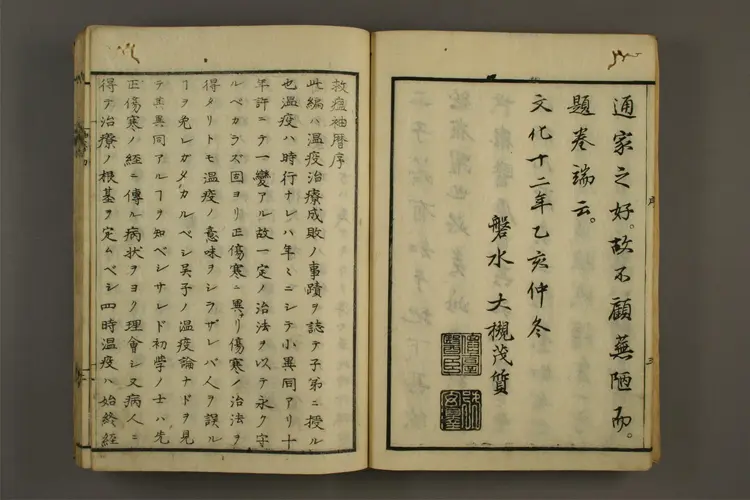 通家之好。故不顧蕪陋而。
題卷端云。
文化十二年乙亥仲冬
磐水大槻茂質
序
三
救瘟袖暦序
此編ハ温疫治療成敗ノ事蹟ヲ誌テ子弟ニ授ル
也温疫ハ時行ナレハ年々ニシテ小異同アリ十
年許ニテ一變アル故一定ノ治法ヲ以テ永ク守
ルベカラズ固ヨリ正傷寒ニ異リ傷寒ノ治法ヲ
得タリトモ温疫ノ意味ヲシラザレバ人ヲ誤ル
ヿヲ免レガタカルベシ吳子ノ温疫論ナドヲ見
テ其異同アルヿヲ知ベシサレド初學ノ士ハ先
正傷寒ノ經ニ傳ル病状ヲヨク理會シ又病人ニ
得テ治療ノ根基ヲ定ムベシ四時温疫ハ始終經